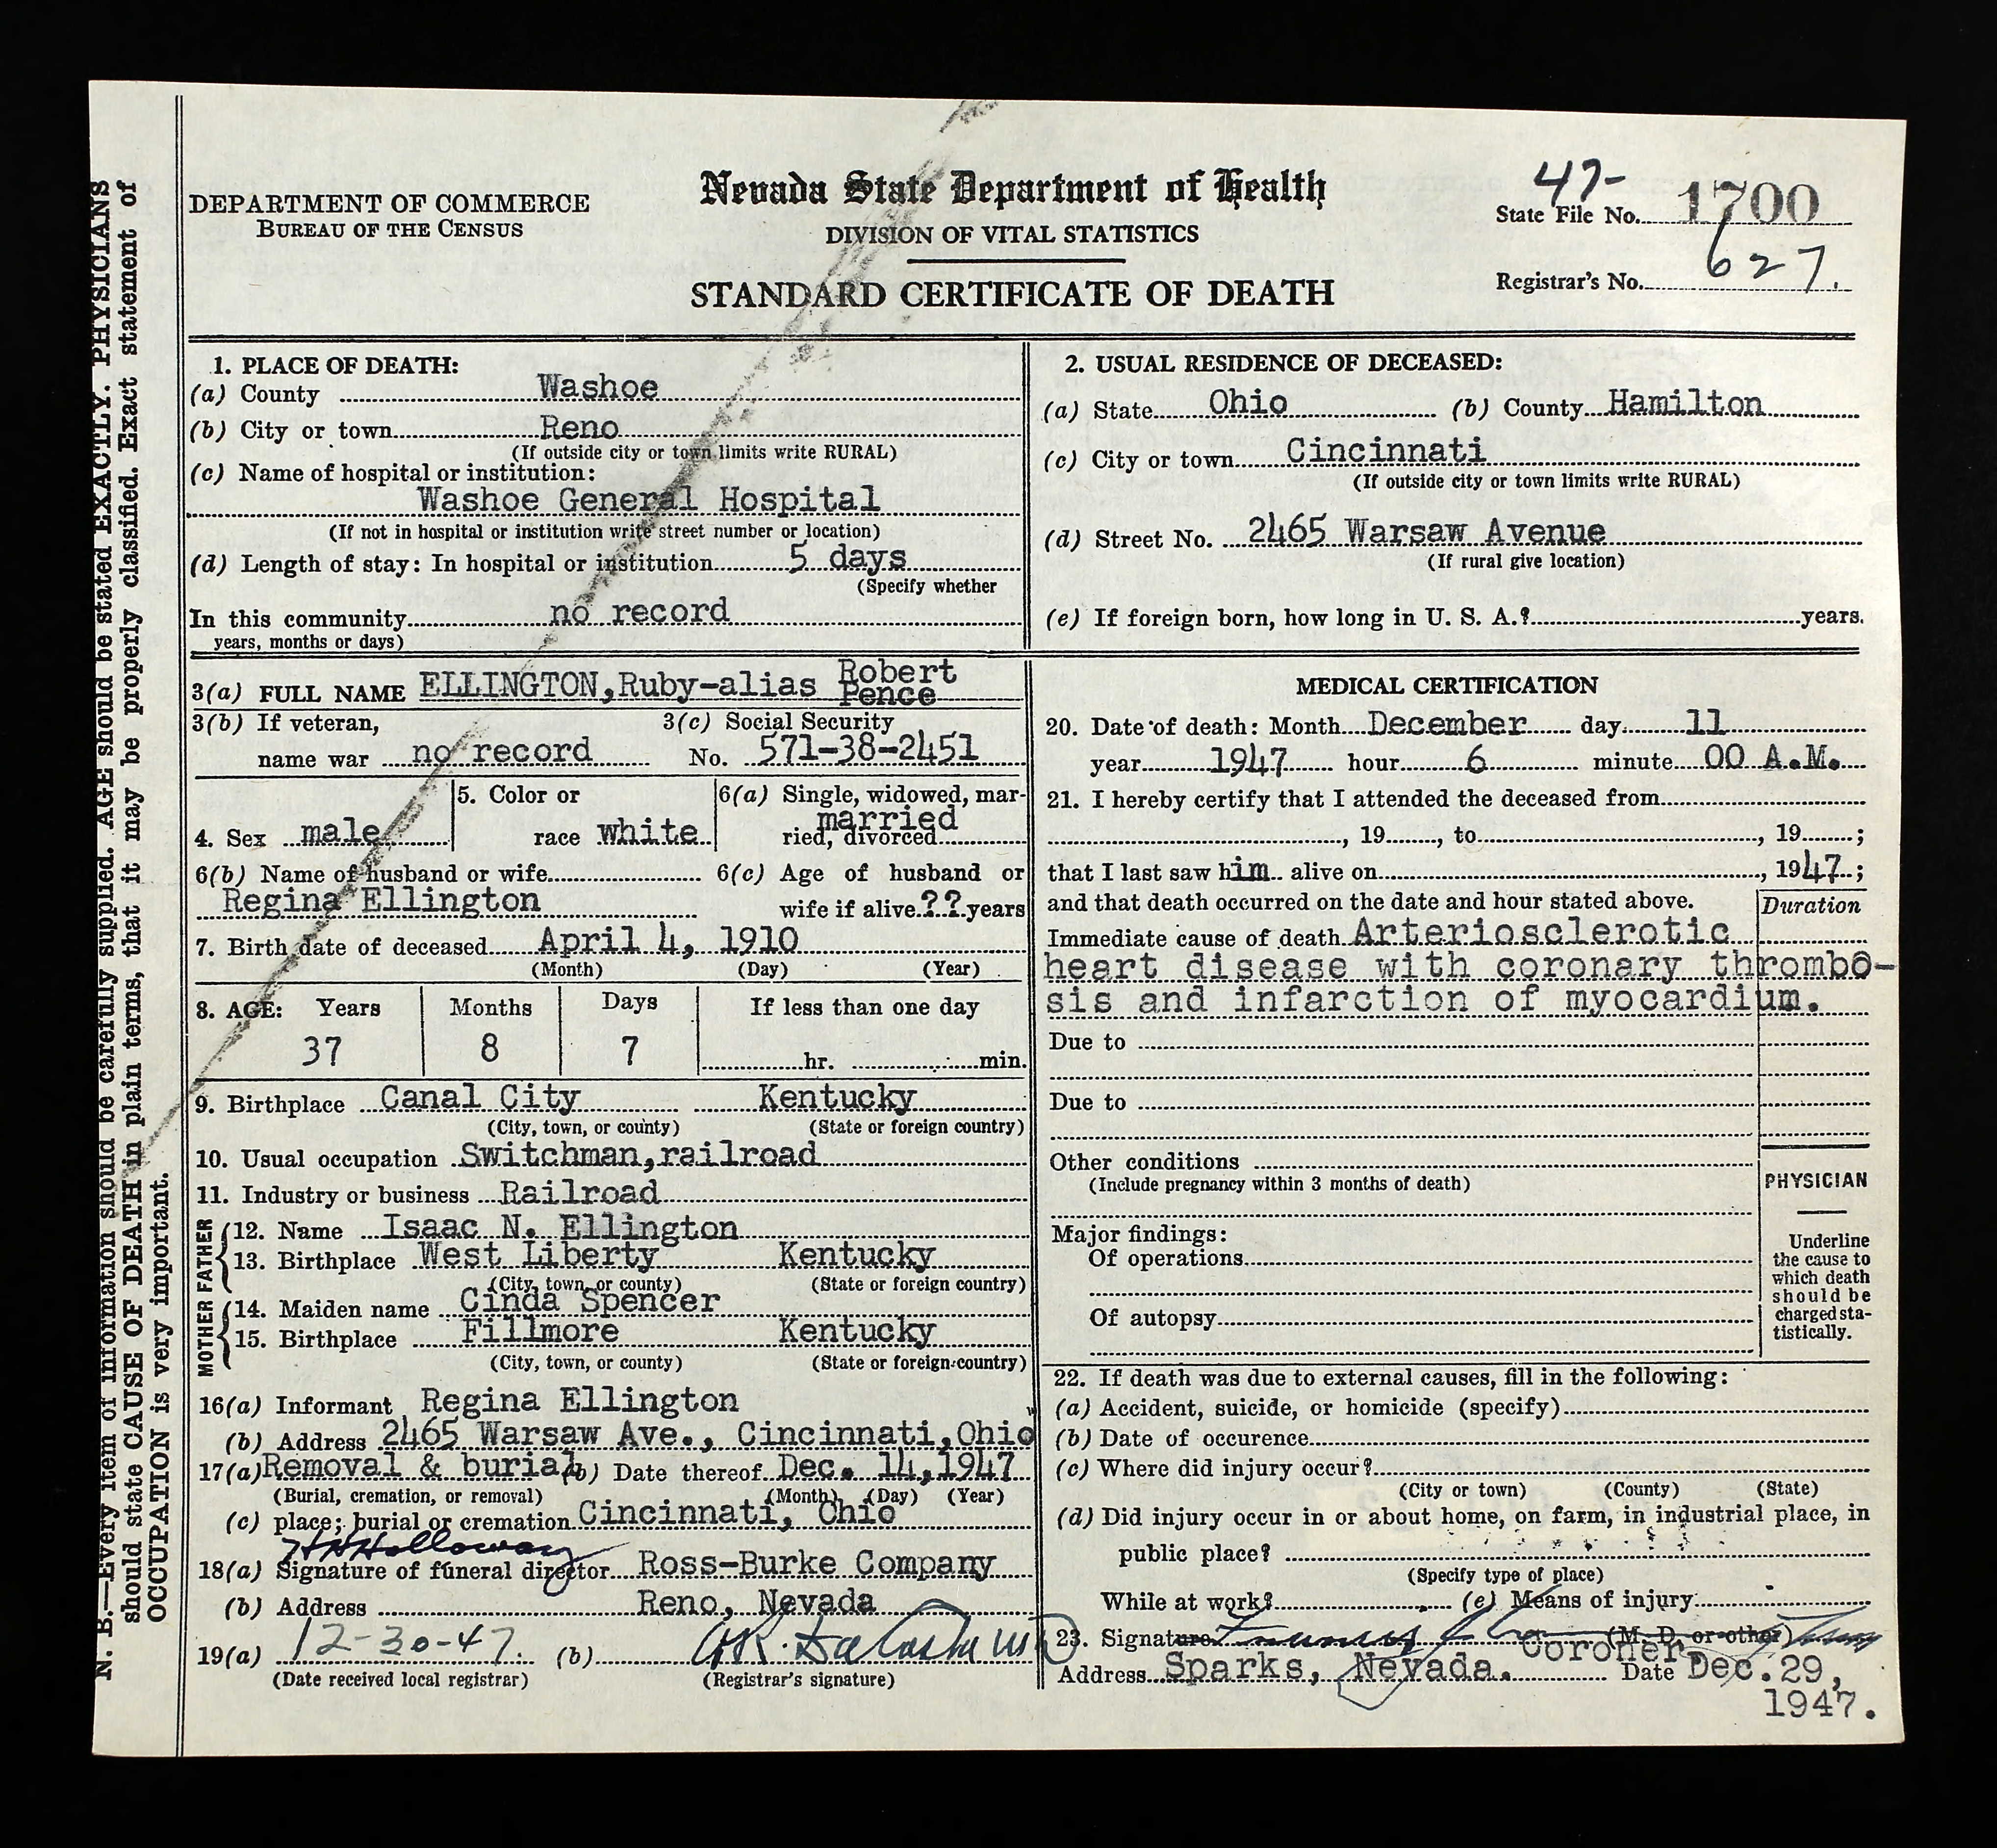 DEPARTMENT OF COMMERCE
BUREAU OF THE CENSUS
Nevada State Department of Health
DIVISION OF VITAL STATISTICS
STANDARD CERTIFICATE OF DEATH
47-
State File No. 1700
Registrar's No. 627.
N. B.—Every item of information should be carefully supplied. AGE should be stated EXACTLY. PHYSICIANS
should state CAUSE OF DEATH in plain terms, that it may be properly classified. Exact statement of
OCCUPATION is very important.
1. PLACE OF DEATH:
(a) County Washoe
(b) City or town Reno
(If outside city or town limits write RURAL)
(c) Name of hospital or institution:
Washoe General Hospital
(If not in hospital or institution write street number or location)
(d) Length of stay: In hospital or institution 5 days
(Specify whether
In this community no record
years, months or days)
2. USUAL RESIDENCE OF DECEASED:
(a) State Ohio (b) County Hamilton
(c) City or town Cincinnati
(If outside city or town limits write RURAL)
(d) Street No. 2465 Warsaw Avenue
(If rural give location)
(e) If foreign born, how long in U. S. A.? years.
3(a) FULL NAME ELLINGTON, Ruby-alias Robert
Pence
3(b) If veteran, 3(c) Social Security
name war no record No. 571-38-2451
4. Sex male
5. Color or
race white
6(a) Single, widowed, mar-
married
ried, divorced
6(b) Name of husband or wife
Regina Ellington
6(c) Age of husband or
wife if alive ?? years
7. Birth date of deceased April 4, 1910
(Month) (Day) (Year)
8. AGE: Years Months Days If less than one day
37 8 7 hr. min.
9. Birthplace Canal City Kentucky
(City, town, or county) (State or foreign country)
10. Usual occupation Switchman, railroad
11. Industry or business Railroad
FATHER
12. Name Isaac N. Ellington
13. Birthplace West Liberty Kentucky
(City, town, or county) (State or foreign country)
MOTHER
14. Maiden name Cinda Spencer
15. Birthplace Fillmore Kentucky
(City, town, or county) (State or foreign country)
16(a) Informant Regina Ellington
(b) Address 2465 Warsaw Ave., Cincinnati, Ohio
17(a) Removal & burial (b) Date thereof Dec. 14, 1947
(Burial, cremation, or removal) (Month) (Day) (Year)
(c) place; burial or cremation Cincinnati, Ohio
H Holloway
18(a) Signature of funeral director Ross-Burke Company
(b) Address Reno, Nevada
19(a) 12-30-47. (b)
(Date received local registrar) (Registrar's signature)
MEDICAL CERTIFICATION
20. Date of death: Month December day 11
year 1947 hour 6 minute 00 A.M.
21. I hereby certify that I attended the deceased from
, 19 , to , 19 ;
that I last saw him alive on , 1947 ;
and that death occurred on the date and hour stated above.
Duration
Immediate cause of death Arteriosclerotic
heart disease with coronary thrombo-
sis and infarction of myocardium.
Due to
Due to
Other conditions
(Include pregnancy within 3 months of death)
Major findings:
Of operations
Of autopsy
PHYSICIAN
Underline
the cause to
which death
should be
charged sta-
tistically.
22. If death was due to external causes, fill in the following:
(a) Accident, suicide, or homicide (specify)
(b) Date of occurence
(c) Where did injury occur?
(City or town) (County) (State)
(d) Did injury occur in or about home, on farm, in industrial place, in
public place?
(Specify type of place)
While at work? (e) Means of injury
23. Signature (M. D. or other)
Coroner
Address Sparks, Nevada. Date Dec. 29,
1947.